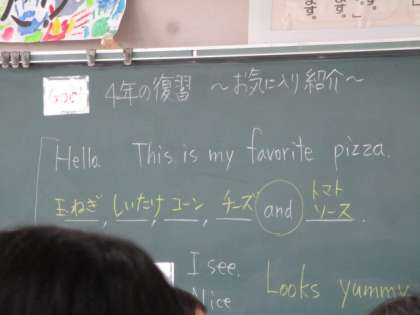 Goal 4年の復習 ～お気に入り紹介～
Hello. This is my favorite pizza.
玉ねぎ, しいたけ, コーン, チーズ and トマトソース.
I see.
Looks yummy
Nice